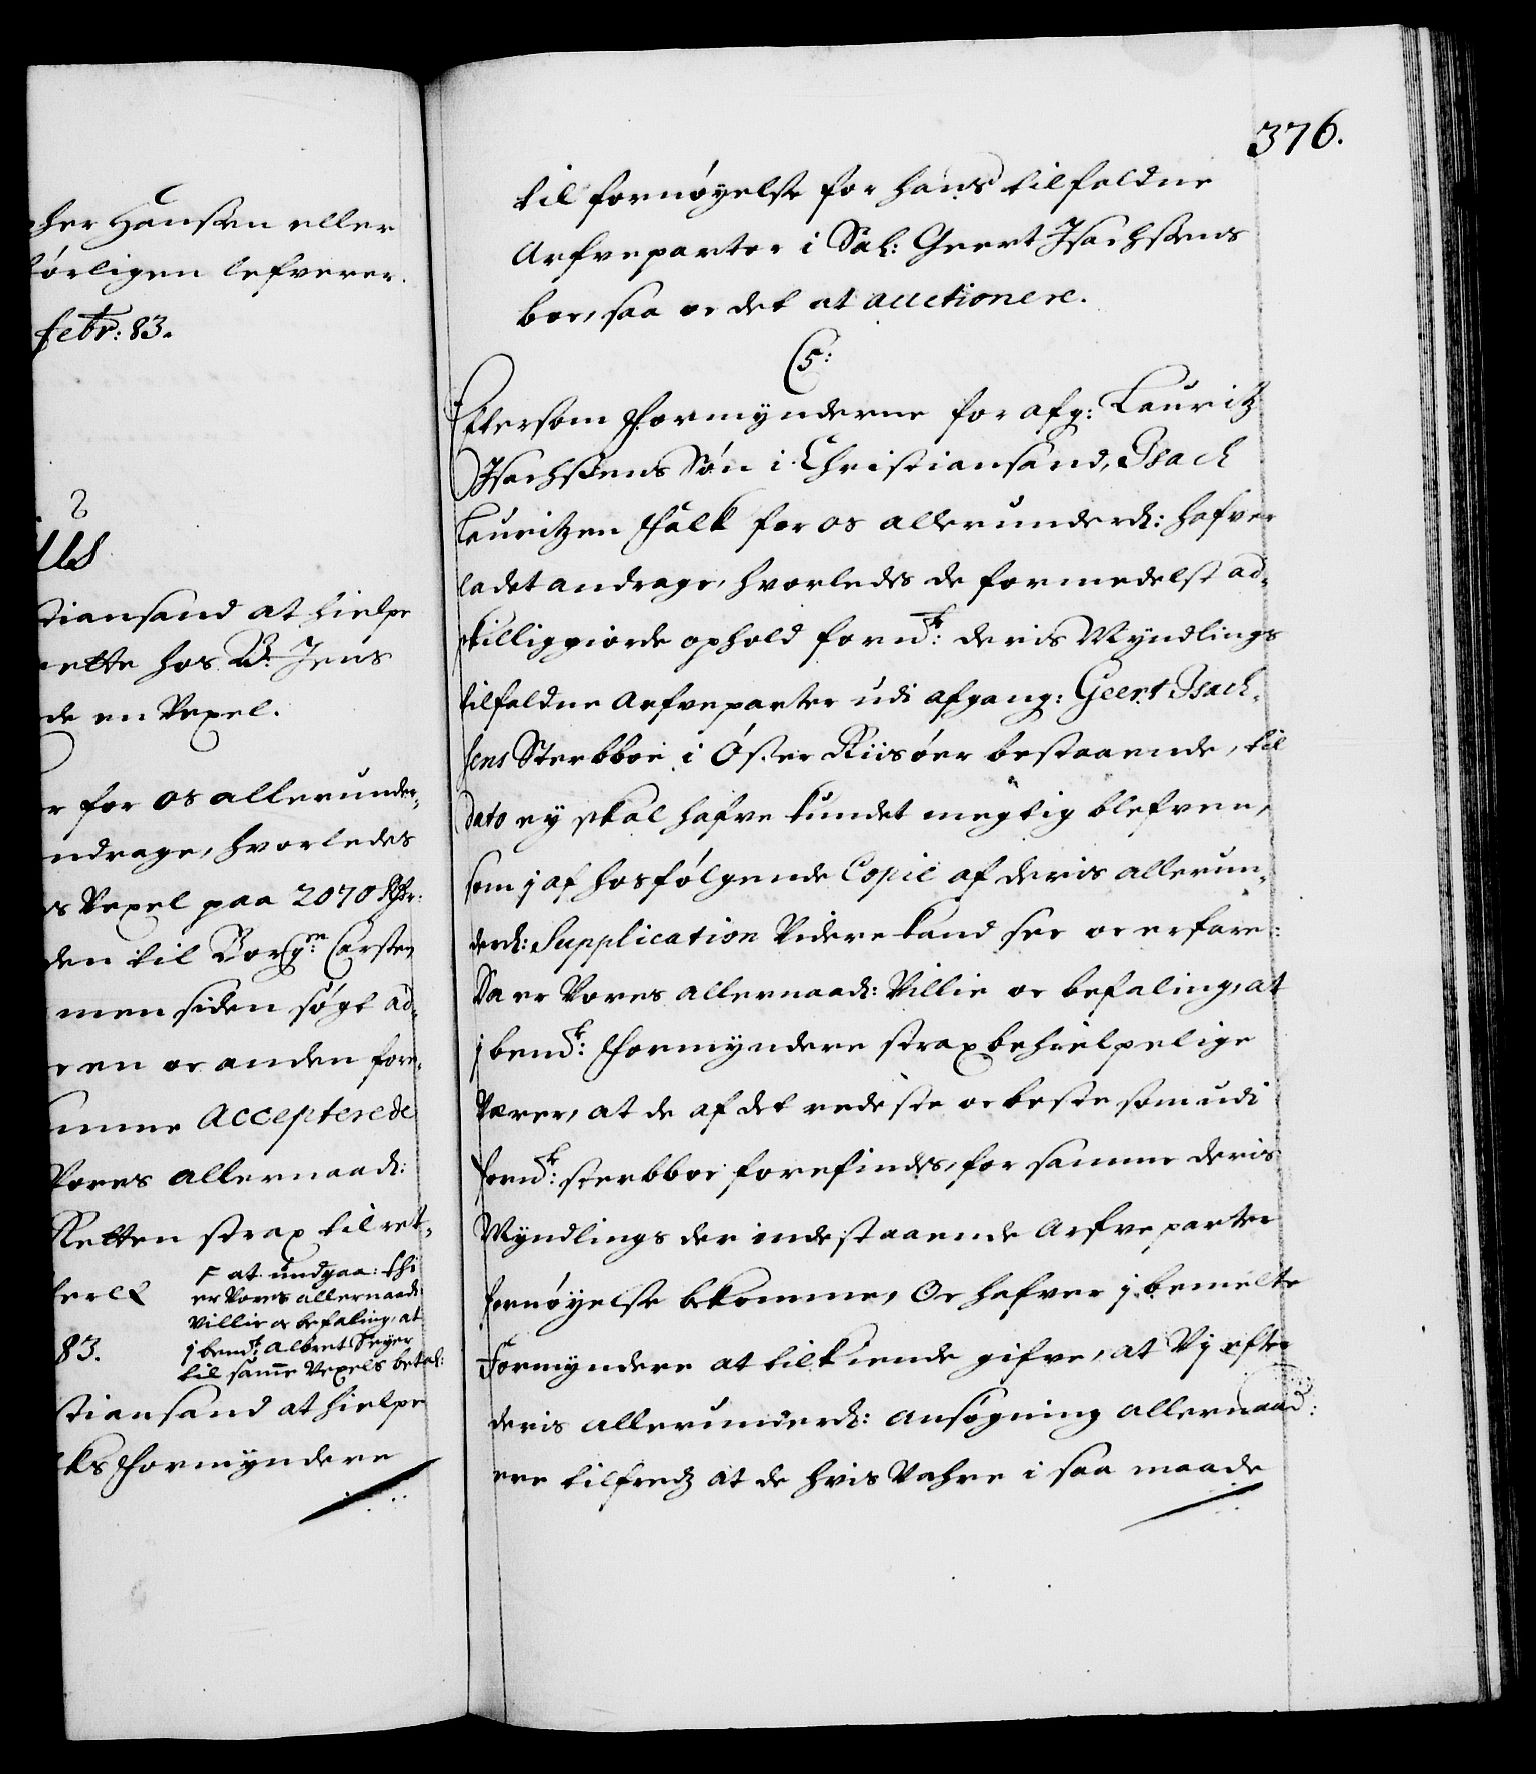 her Hanssen eller
hørligen lefverer.
febr: 83.
tiansand at hielpe
rette hos B: Jens
de en Vexel.
r for os allerunder-
ndrage, hvorledes
s Vexel paa 2070 Rdr:
den til Borgm: Carsten
men siden søgt ad-
r en oc anden fore-
mme Accepterede
Vores allernaad:
Retten strax til ret-
F at undgaa: thi
er Vores allernaad:
Villie oc befaling, at
j bemt: Albret Seyer
til samme Vexels betal:
83.
tiansand at hielpe
ks Formyndere
376.
til fornøyelse for hans tilfaldne
Arfveparter i Sal: Geert Isachsens
boe, saa oc det at auctionere.
C5:
Eftersom Formynderne for afg: Lauritz
Isachsens Søn i Christiansand, Isach
Lauritzen Falk for os allerunderd: hafver
ladet andrage, hvorledes de formedelst ad-
skilliggiorde ophold fornt: deris Myndlings
tilfaldne Arfveparter udi afgang: Geert Isach-
sens Sterbboe i Øster Riisøer bestaaende, til
dato ey skal hafve kundet megtig blefven,
som j af hosfølgende Copie af deris allerun-
derd: Supplication Videre kand see oc erfare:
Da er Vores allernaad: Villie oc befaling, at
j bemt: Formyndere strax behielpelige
Værer, at de af det redeste oc beste som udi
fornt: sterbboe forefindes, for samme deris
Myndlings der indestaaende Arfveparter
fornøyelse bekomme, Oc hafver j bemelte
Formyndere at tilkiende gifve, at Vj efter
deris allerunderd: ansøgning allernaad:
ere tilfreds at de hvis Vahre i saa maade